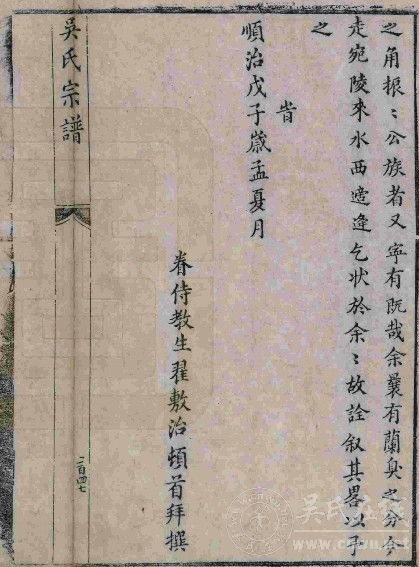 之角振〻公族者又寧有既哉余曩有蘭臭之分今
走宛陵來水西適逢乞状於余〻故詮叙其畧以予
之
旹
順治戊子歲孟夏月
眷侍教生翟敷治頓首拜撰
吳氏宗譜
二百四七
吴氏在线